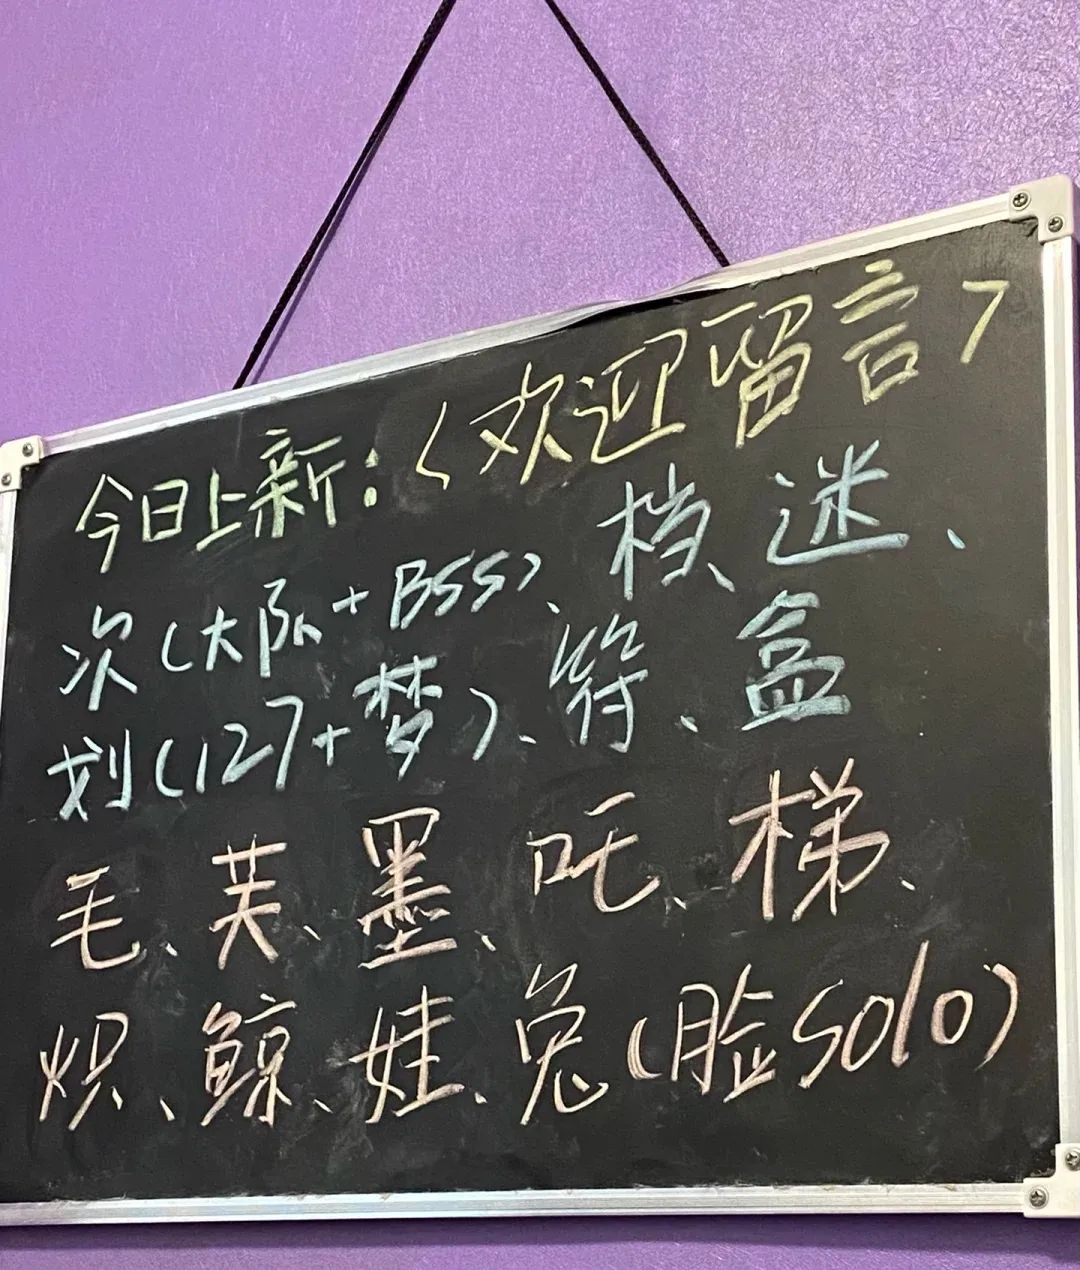 今日上新：〈欢迎留言〉
次（大队+BSS）、档、迷、
划（127+梦）、符、盒
毛、芙、墨、吒、梯、
炽、鲸、娃、兔（脸solo）